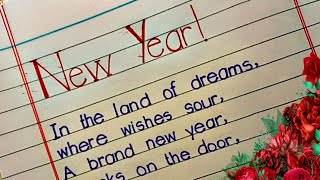 New Year!
In the land of dreams,
where wishes sour,
A brand new year,
on the door,